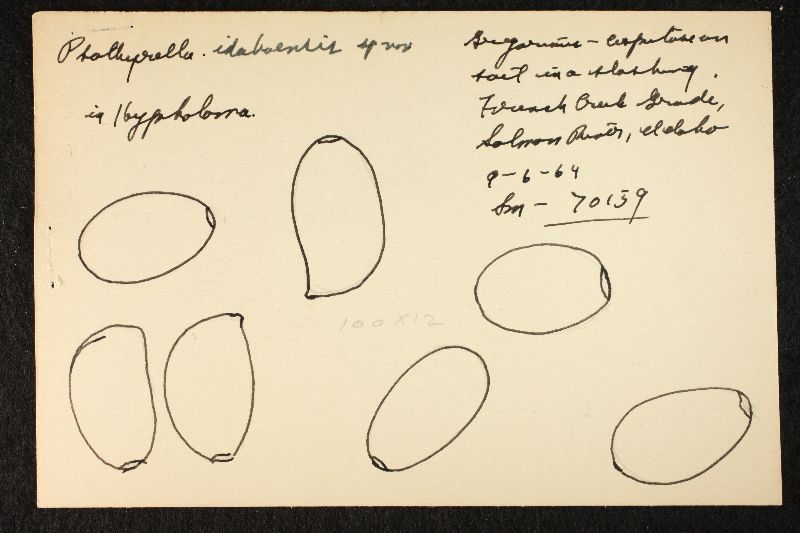 Psathyrella. idahoensis sp nov
in Hypholoma.
Gregarious - cespitose on
soil in a slashing.
French Creek Grade,
Salmon River, Idaho
9-6-64
Sm - 70159
100 X 12